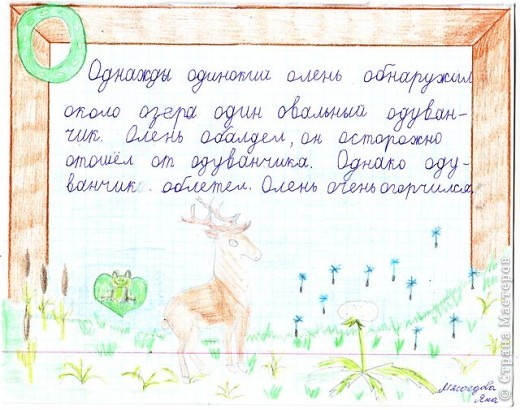 О
Однажды одинокий олень обнаружил
около озера один овальный одуван-
чик. Олень обалдел, он осторожно
отошёл от одуванчика. Однако оду-
ванчик облетел. Олень очень огорчился.
Мясоедова
Яна
© Страна Мастеров